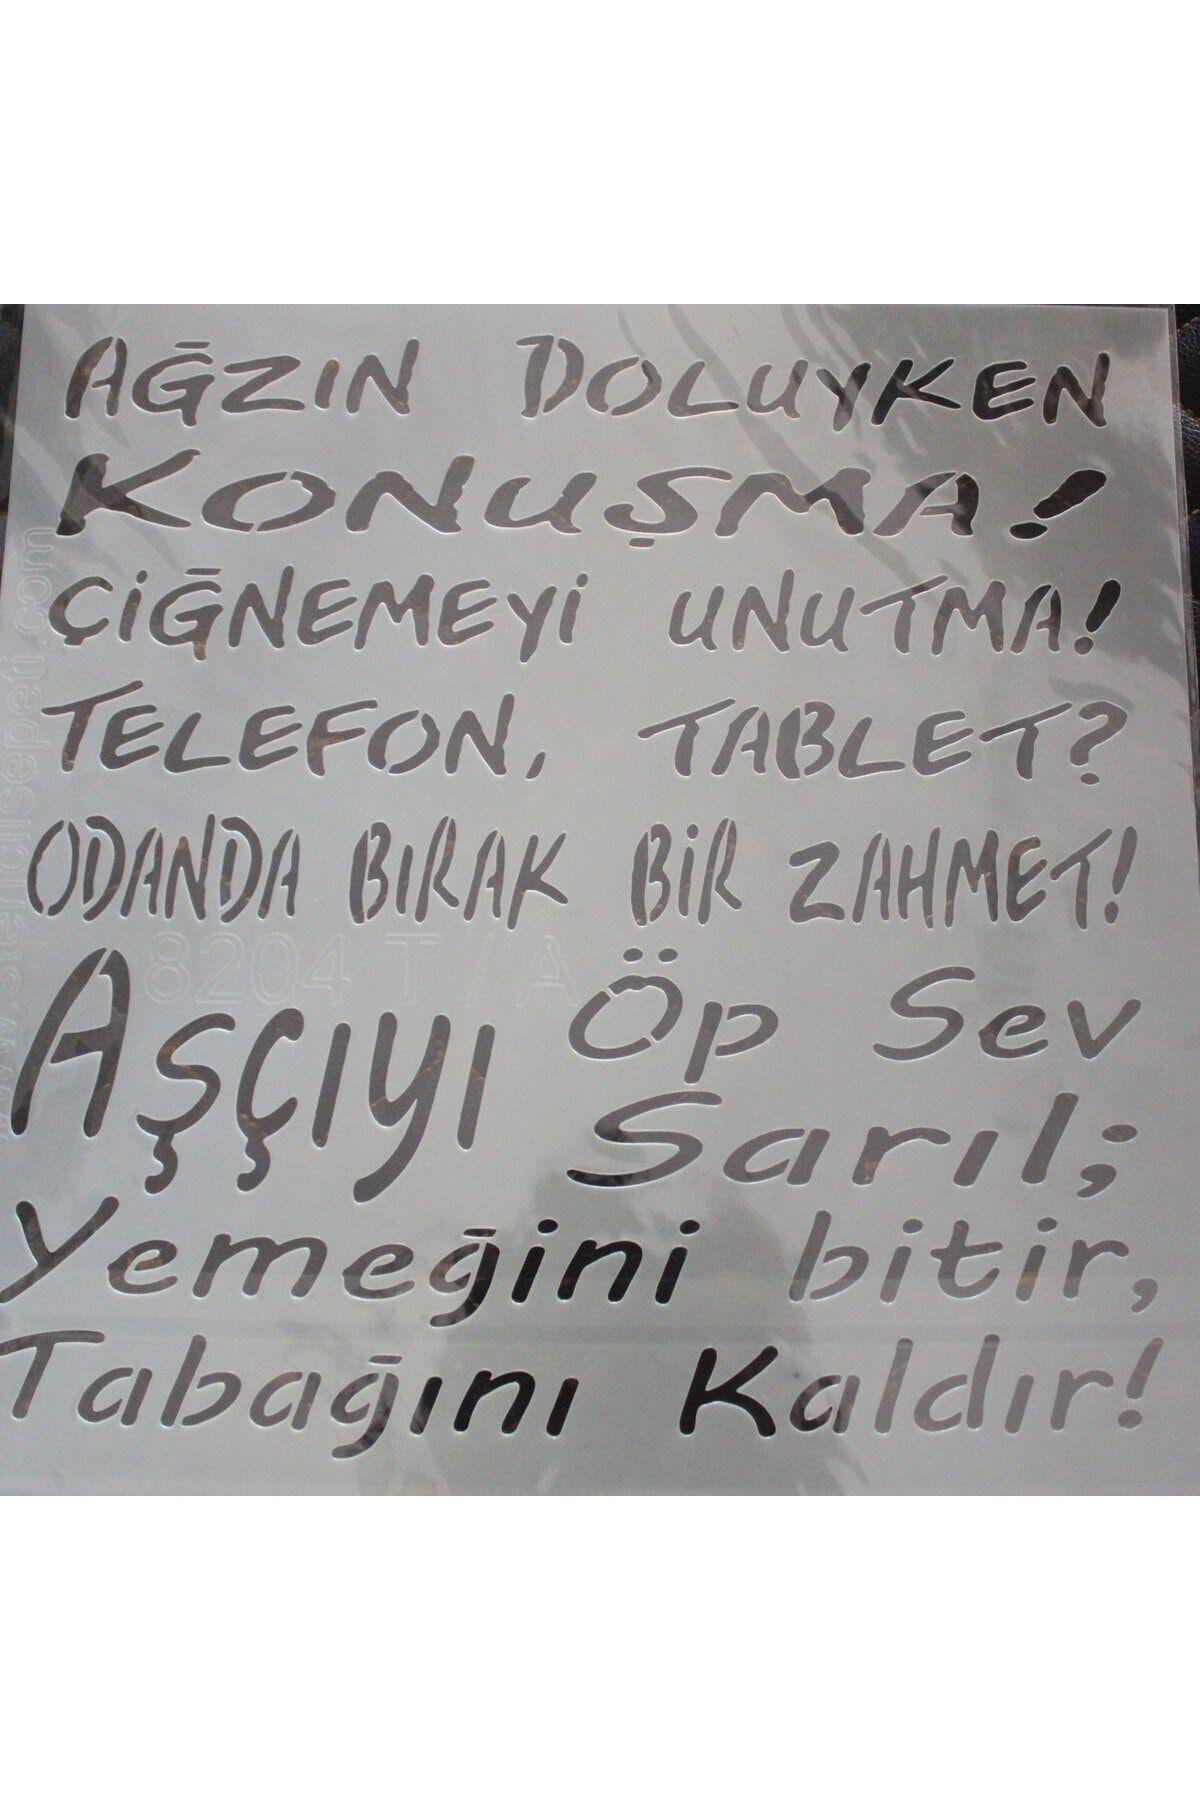 AĞZIN DOLUYKEN
KONUŞMA!
ÇİĞNEMEYİ UNUTMA!
TELEFON, TABLET?
ODANDA BIRAK BİR ZAHMET!
8204 T / A
AŞÇIYI Öp Sev
Sarıl;
Yemeğini bitir,
Tabağını Kaldır!
www.stencilsepeti.com